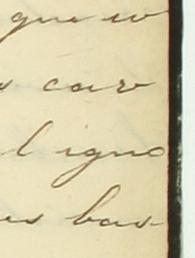 que u
s car
l igno
es bas